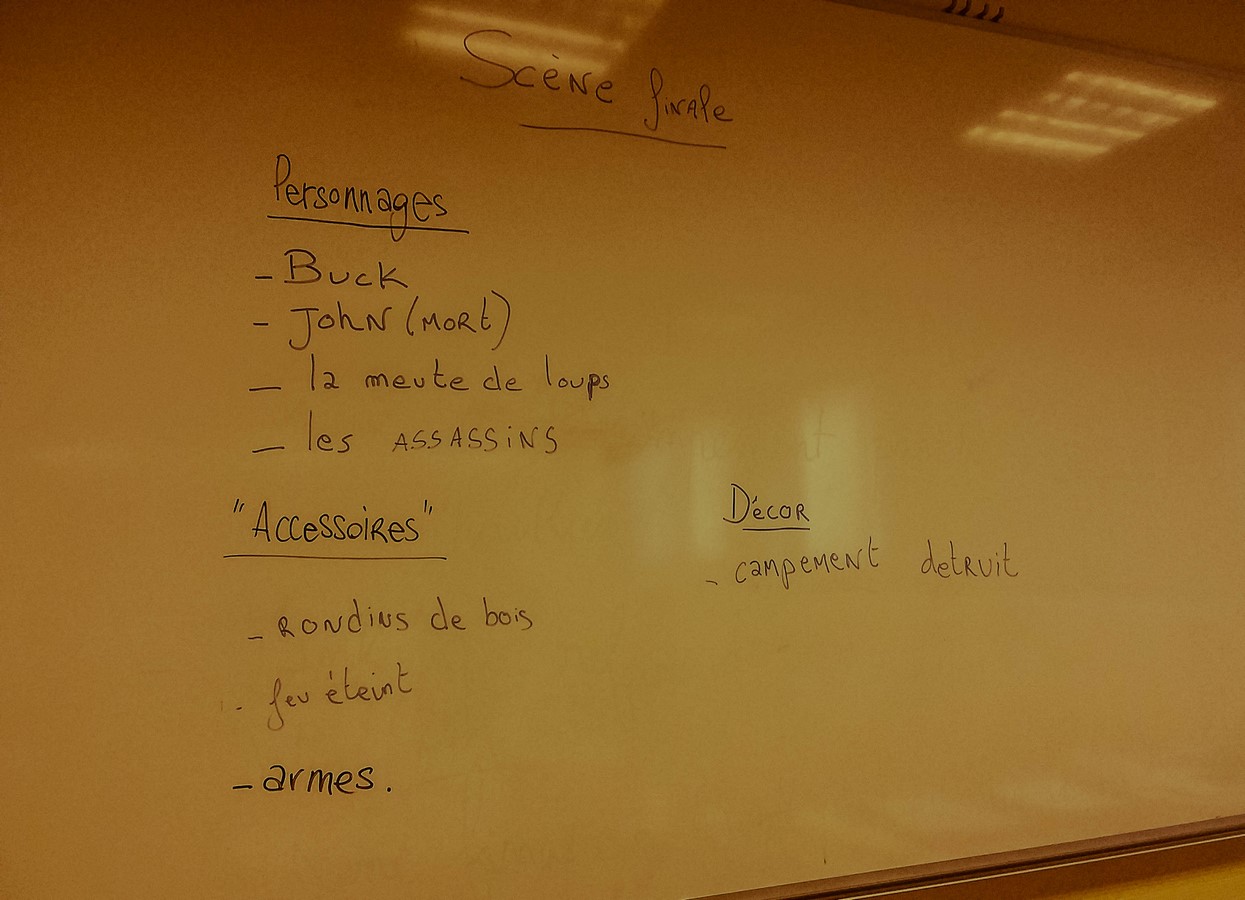 Scène finale
Personnages
- Buck
- John (mort)
- la meute de loups
- les assassins
"Accessoires"
- rondins de bois
- feu éteint
- armes.
Décor
- campement detruit